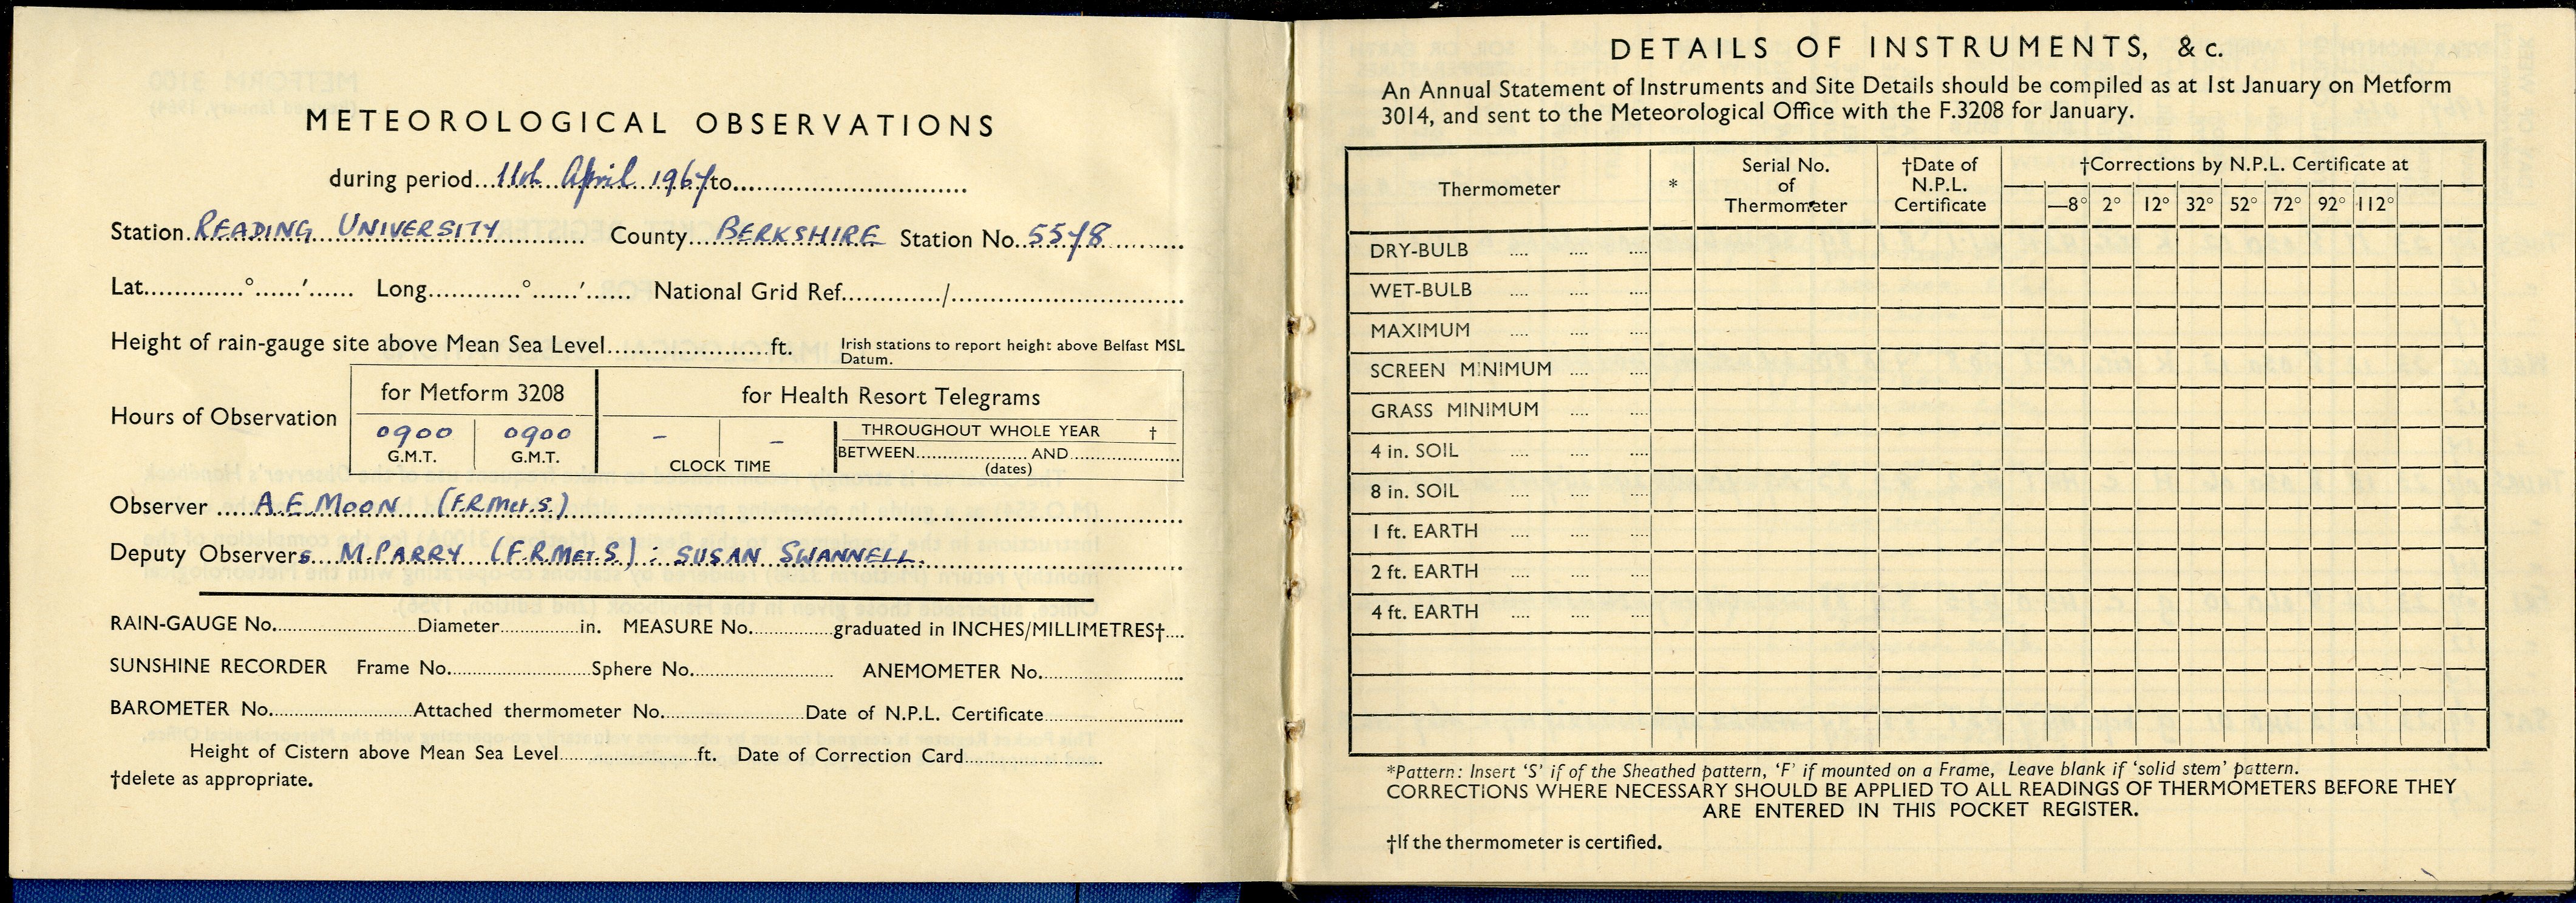 METEOROLOGICAL OBSERVATIONS
during period...11th April 1967 to...
Station READING UNIVERSITY County BERKSHIRE Station No. 5578
Lat............°......'...... Long............°......'...... National Grid Ref............/............
Height of rain-gauge site above Mean Sea Level............ft. Irish stations to report height above Belfast MSL
Datum.
Hours of Observation
for Metform 3208
for Health Resort Telegrams
0900 0900 – –
G.M.T. G.M.T. CLOCK TIME
THROUGHOUT WHOLE YEAR †
BETWEEN............AND............
(dates)
Observer .... A.E MOON (F.R.Met.S.)
Deputy Observers M. PARRY (F.R.Met.S.) : SUSAN SWANNELL.
RAIN-GAUGE No............Diameter............in. MEASURE No............graduated in INCHES/MILLIMETRES†....
SUNSHINE RECORDER Frame No............Sphere No............ ANEMOMETER No............
BAROMETER No............Attached thermometer No............Date of N.P.L. Certificate............
Height of Cistern above Mean Sea Level............ft. Date of Correction Card............
†delete as appropriate.
DETAILS OF INSTRUMENTS, & c.
An Annual Statement of Instruments and Site Details should be compiled as at 1st January on Metform
3014, and sent to the Meteorological Office with the F.3208 for January.
Thermometer
*
Serial No.
of
Thermometer
†Date of
N.P.L.
Certificate
†Corrections by N.P.L. Certificate at
—8° 2° 12° 32° 52° 72° 92° 112°
DRY-BULB .... .... ....
WET-BULB .... .... ....
MAXIMUM .... .... ....
SCREEN MINIMUM .... ....
GRASS MINIMUM .... ....
4 in. SOIL .... .... ....
8 in. SOIL .... .... ....
1 ft. EARTH .... .... ....
2 ft. EARTH .... .... ....
4 ft. EARTH .... .... ....
*Pattern: Insert 'S' if of the Sheathed pattern, 'F' if mounted on a Frame, Leave blank if 'solid stem' pattern.
CORRECTIONS WHERE NECESSARY SHOULD BE APPLIED TO ALL READINGS OF THERMOMETERS BEFORE THEY
ARE ENTERED IN THIS POCKET REGISTER.
†If the thermometer is certified.